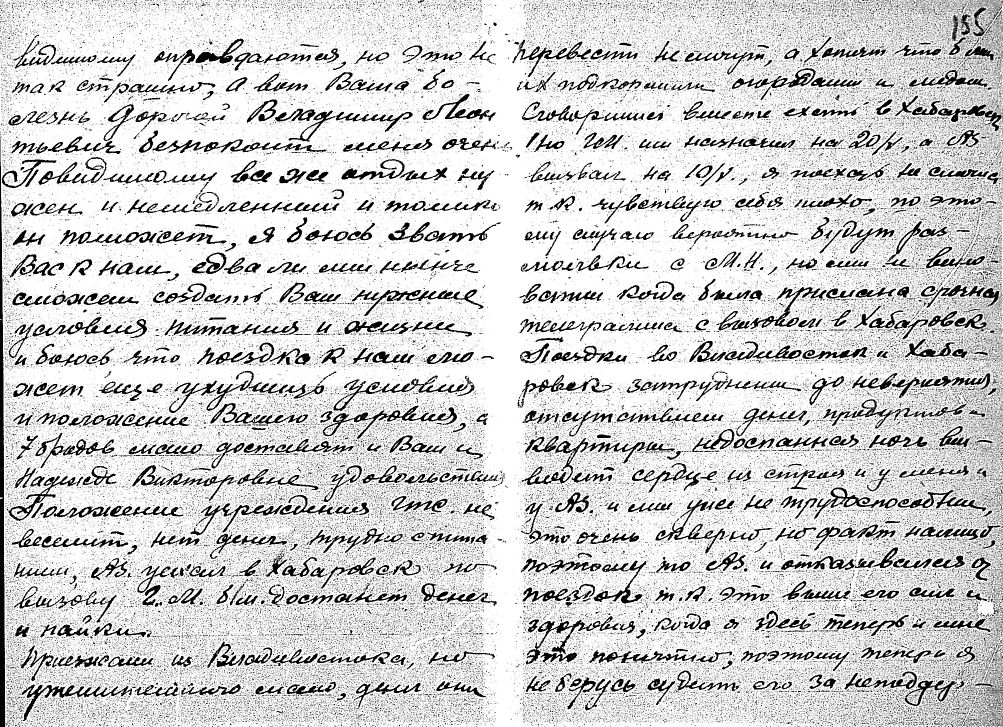 155
видимому оправдаются, но это не
так страшно, а вот Ваша бо-
лезнь Дорогой Владимир Леон
тьевич безпокоит меня очень
Повидимому все же отдых ну
жен и немедленный и только
он поможет, я боюсь звать
Вас к нам, едва ли мы нынче
сможем создать Вам нужные
условия питания и жизни
и боюсь что поездка к нам мо-
жет еще ухудшить условия
и положение Вашего здоровия, а
мало доставят и Вам и
Надежде Викторовне удовольствия
Положение учреждения ГТС. не
веселит, нет денег, трудно с пита
нием, АЗ. уехал в Хабаровск по
вызову Г.М. б/м. достанет денег
и пайки.
Приезжали из Владивостока, но
утешительного мало, денег они
перевести не могут, а хотят что б мы
их подкормили огородами и медом.
Сговорились вместе ехать в Хабаровск
но ГМ. им назначил на 20/V, а АЗ
вызвал на 10/V., я поехать не смогла
т.к. чувствую себя плохо, по это-
му случаю вероятно будут раз-
молвки с М.Н., но мы не вино-
ваты когда была прислана срочная
телеграмма с вызовом в Хабаровск.
Поездки во Владивосток и Хаба-
ровск затруднены до невероятия,
отсутствием денег, продуктов и
квартиры, недоспанная ночь вы-
водит сердце из строя и у меня и
у АЗ. и мы уже не трудоспособны,
это очень скверно, но факт налицо,
поэтому то АЗ. и отказывался от
поездок т.к. это выше его сил и
здоровия, когда я здесь теперь и мне
это понятно, поэтому теперь я
не берусь судить его за неподдер-